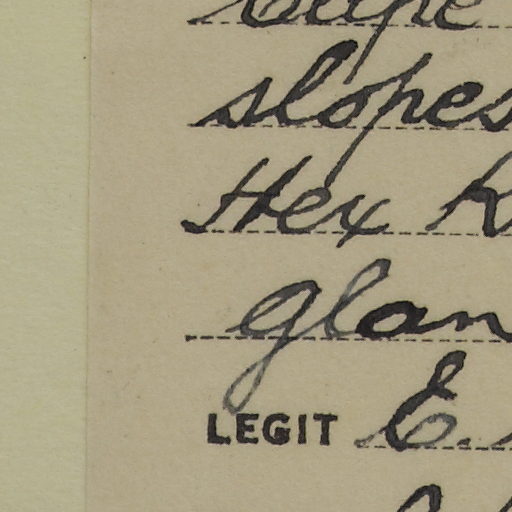 slopes
Hex R
glan
LEGIT E.